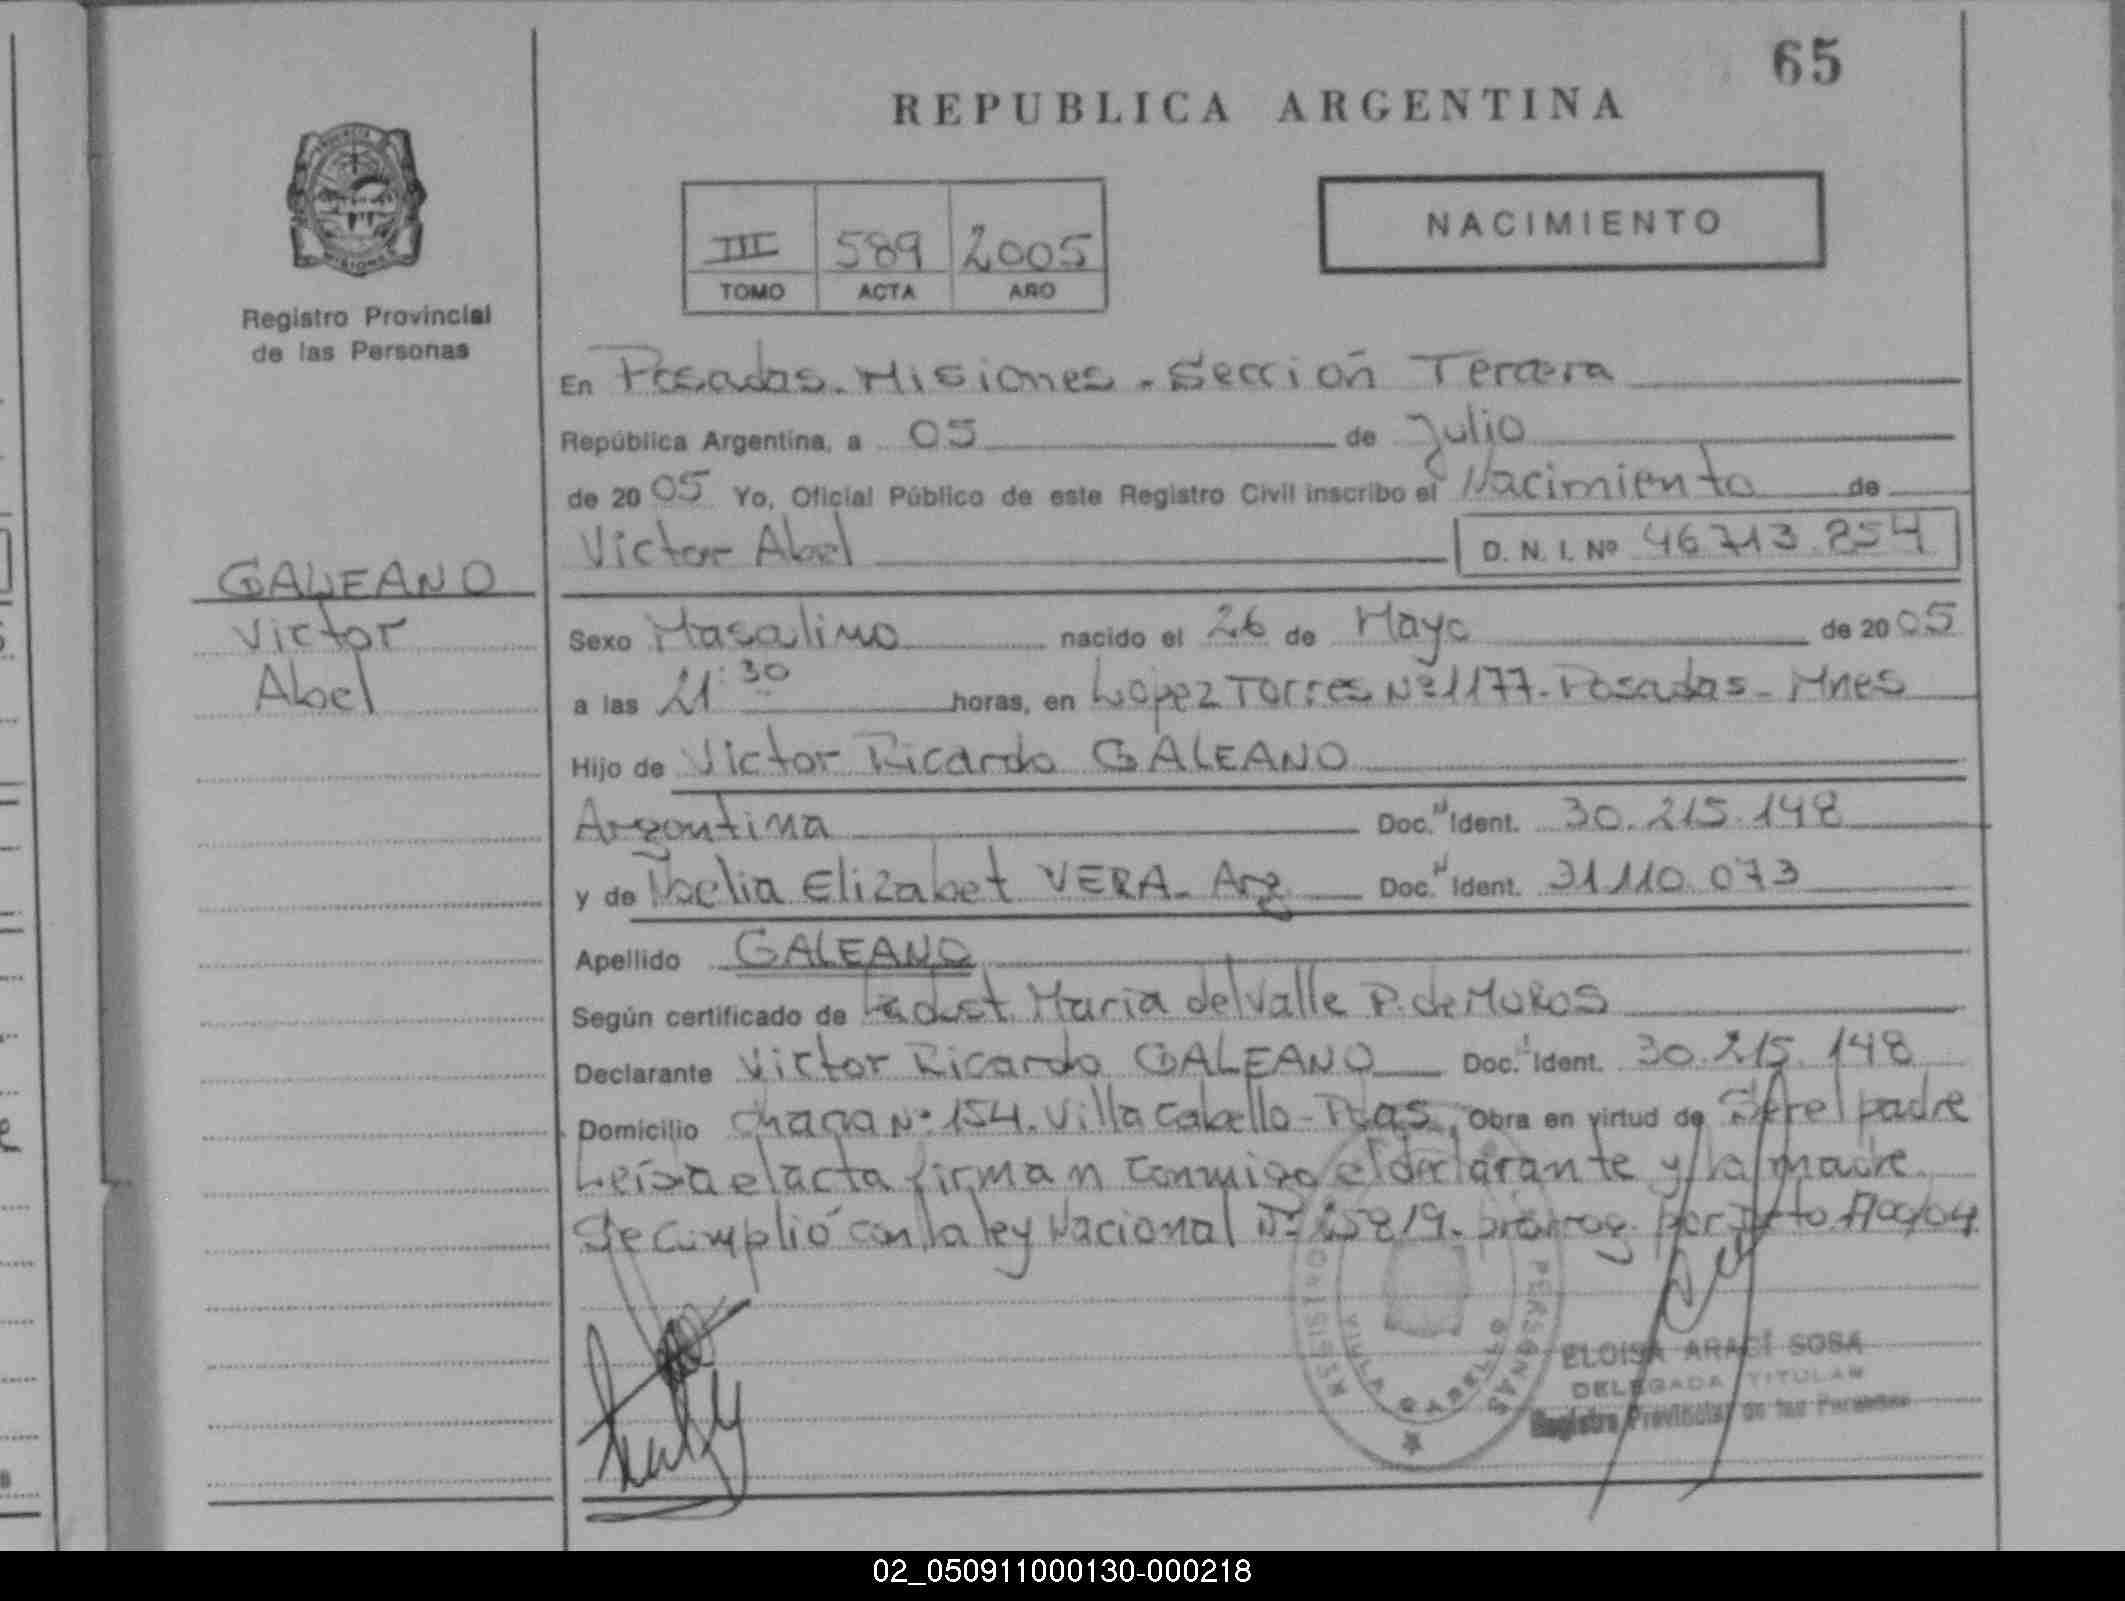 65
REPUBLICA ARGENTINA
NACIMIENTO
III 589 2005
TOMO ACTA AÑO
Registro Provincial
de las Personas
En Posadas - Misiones - Sección Tercera
República Argentina, a 05 de Julio
de 2005 Yo, Oficial Público de este Registro Civil inscribo el Nacimiento de
Victor Abel D. N. I. Nº 46.713.854
GALEANO
Victor
Abel
Sexo Masculino nacido el 26 de Mayo de 2005
a las 21:30 horas, en Lopez Torres Nº 1177 - Posadas - Mnes
Hijo de Victor Ricardo GALEANO
Argentina Doc. Ident. 30.215.148
y de Noelia Elizabet VERA - Arg Doc. Ident. 31.110.073
Apellido GALEANO
Según certificado de la obst. Maria del Valle P. de MOROS
Declarante Victor Ricardo GALEANO Doc. Ident. 30.215.148
Domicilio Chacra Nº 154. Villa Cabello - Pdas. Obra en virtud de Ser el padre
Leída el acta firman conmigo el declarante y la madre.
Se cumplió con la ley Nacional Nº 25819. prorrog. por Dcto
ELOISA ARACÍ SOSA
DELEGADA TITULAR
Registro Provincial de las Personas
02_050911000130-000218